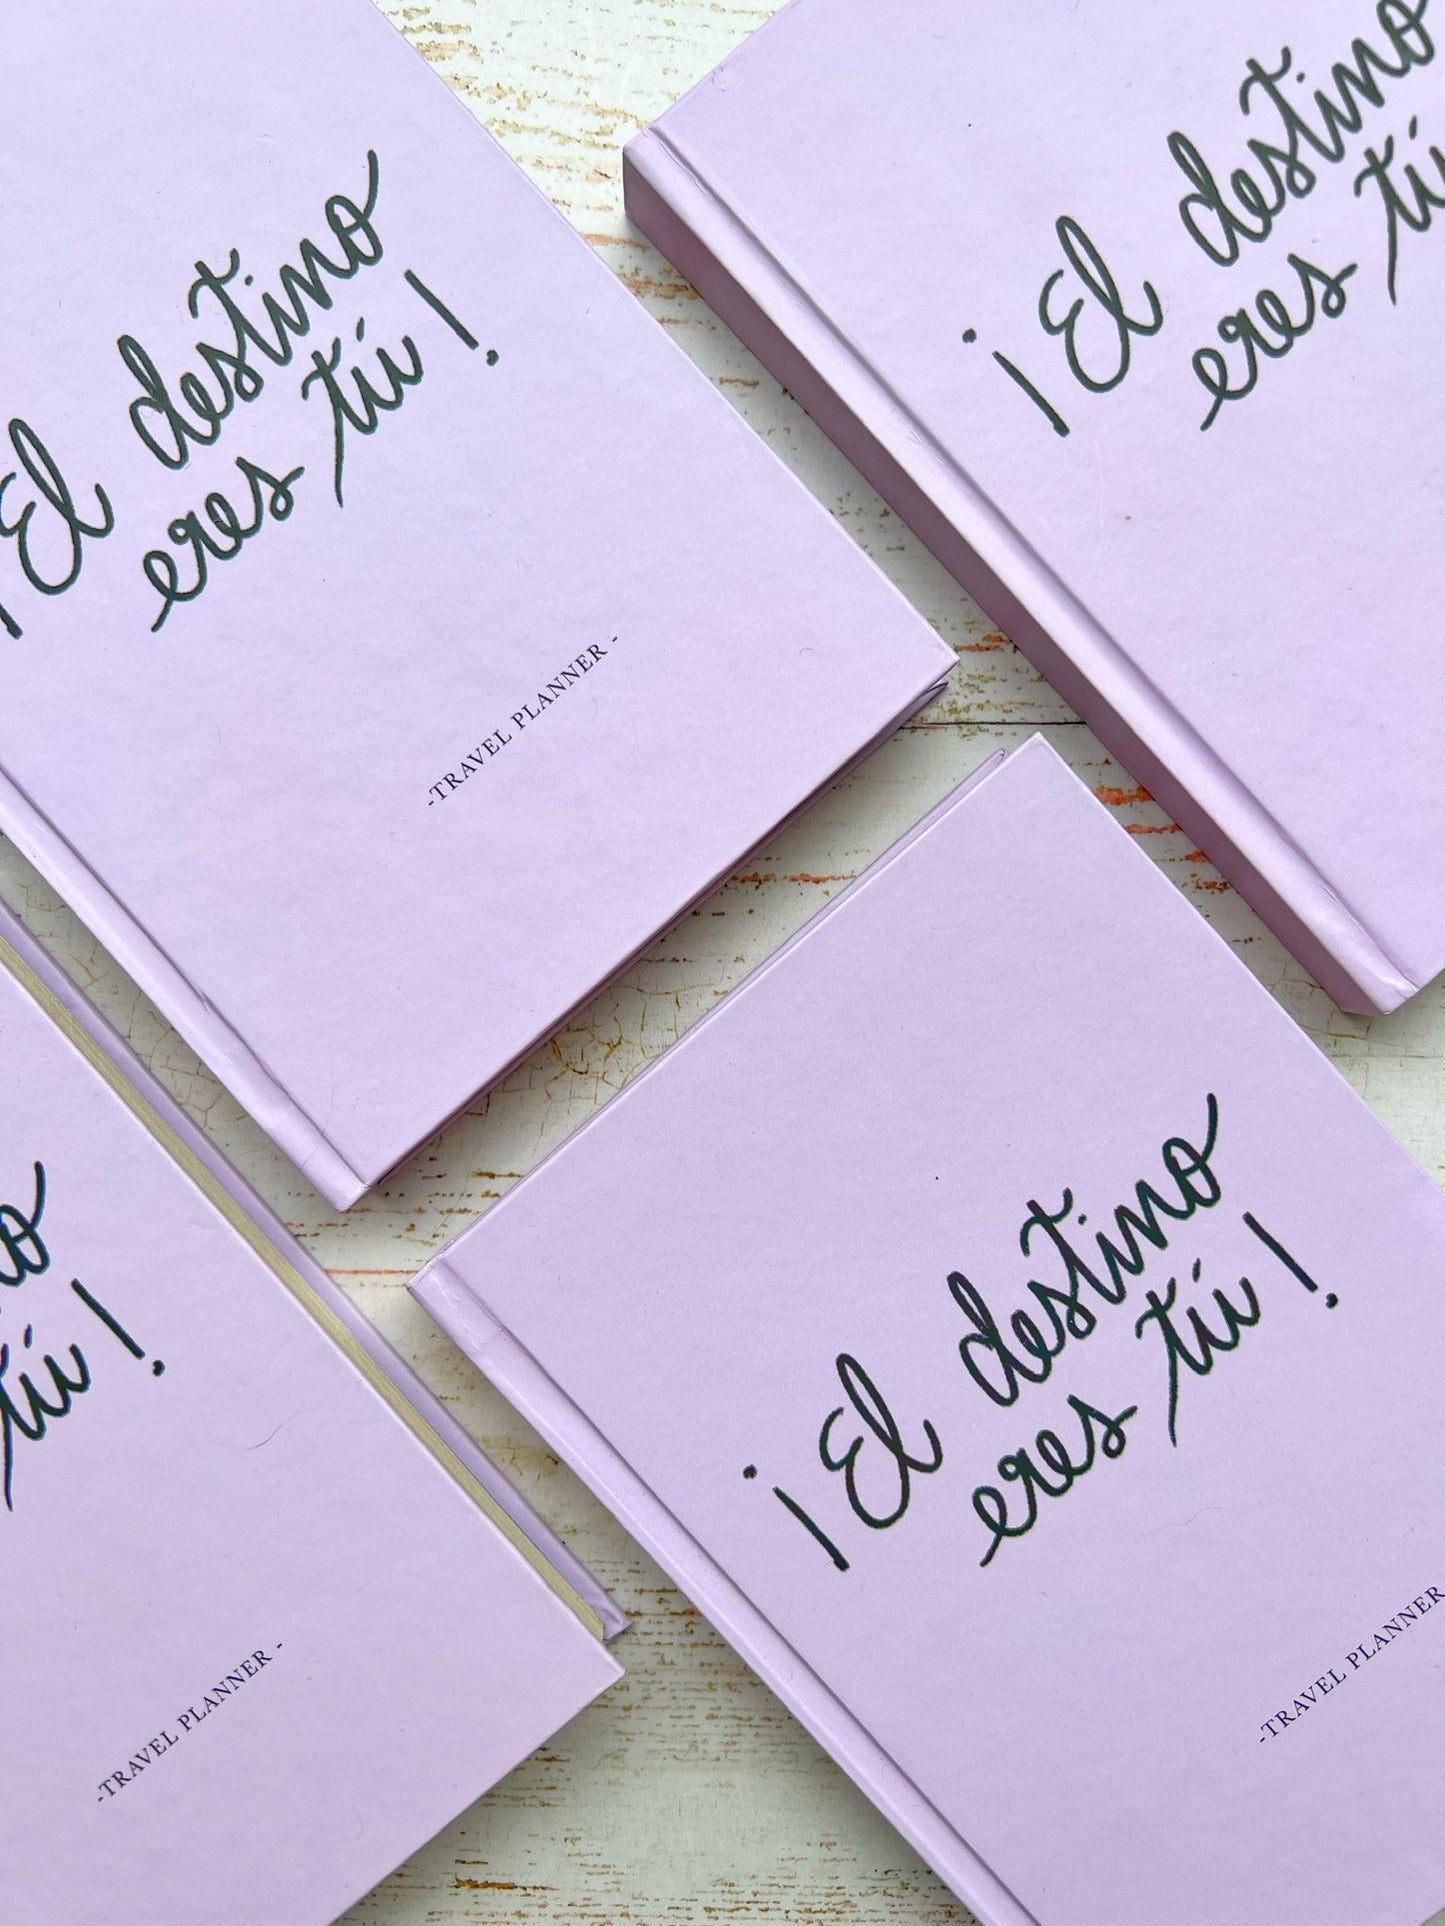 ¡El destino
eres tú!
-TRAVEL PLANNER -
¡El destino
eres tú
tú!
-TRAVEL PLANNER -
¡El destino
eres tú!
-TRAVEL PLANNER